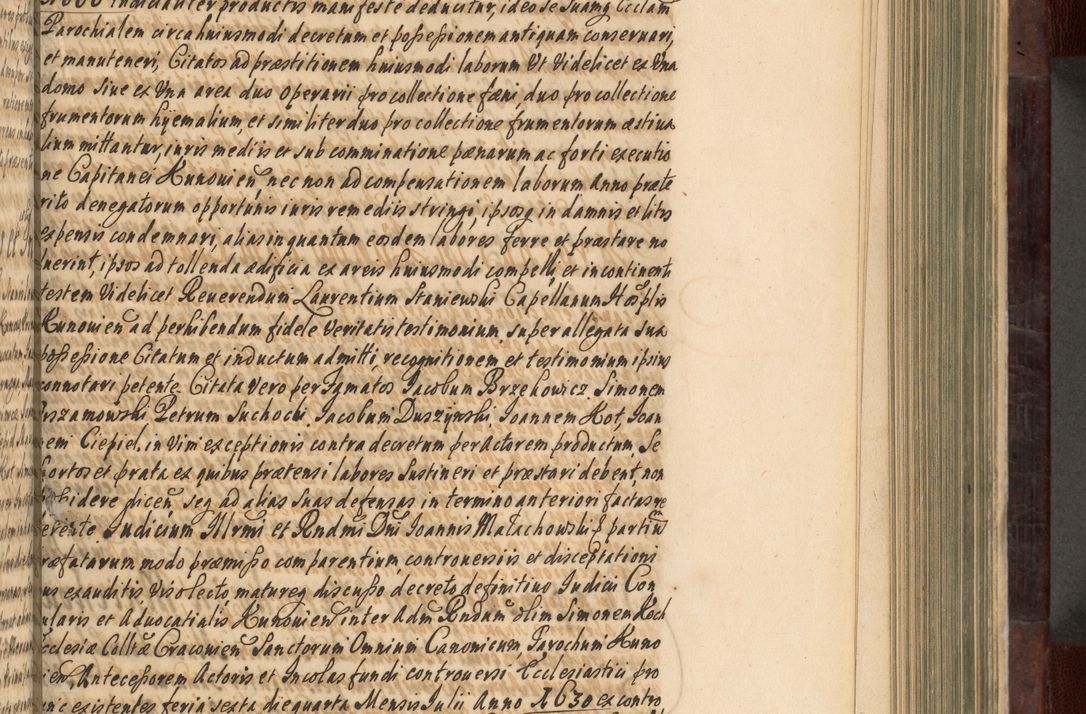 Parochialem circa huiusmodi decretum et possessionem antiquam conseruari,
et manuteneri, Citatos ad præstitionem huiusmodi laborum Ut Videlicet ex Una
domo siue ex Una area duo operarii pro collectione fæni, duo pro collectione
frumentorum hyemalium, et similiter duo pro collectione frumentorum æstiua
lium mittantur, iuris mediis et sub comminatione pænarum ac forti executio
ne Capitanei Kunouien, nec non ad compensationem laborum Anno præte
rito denegatorum opportunis iuris remediis stringi, ipsosq in damnis et litis
expensis condemnari, alias in quantum eosdem labores ferre et præstare no
luerint, ipsos ad tollenda ædificia ex areis huiusmodi compelli, et incontinenti
testem Videlicet Reuerendum Laurentium Staniewski Capellanum Hosplis
Kunouien ad perhibendum fidele Veritatis testimonium, super allegata sua
possessione Citatum et inductum admitti, recognitionem et testimonium ipsius
connotari petente. Citata Vero per Famatos Jacobum Brzekowicz Simonem
szamowski Petrum Suchocki, Jacobum Duszynski, Joannem Kot, Joan
nem Ciepiel. in Vim exceptionis contra decretum per Actorem productum, Se
hortos et prata ex quibus prætensi labores sustineri et præstari debent, non
possidere dicen seq ad alias suas defensas in termino anteriori factas re
ferente Judicium Illrmi et Rndmi Dni Joannis Małachowski partium
præfatarum modo præmisso comparentium controuersiis et disceptationi
bus exauditis Viso lecto matureq discusso decreto definitiuo Judicii Con
sularis et Aduocatialis Kunouien inter Adm Rndum olim Simonem Koch
Ecclesiæ Colltæ Cracouien Sanctorum Omnium Canonicum, Parochum Kuno
uien, Antecessorem Actoris et Incolas fundi controuersi Ecclesiastici pro
tunc existentes feria sexta die quarta Mensis Julii Anno 1630 ex contro